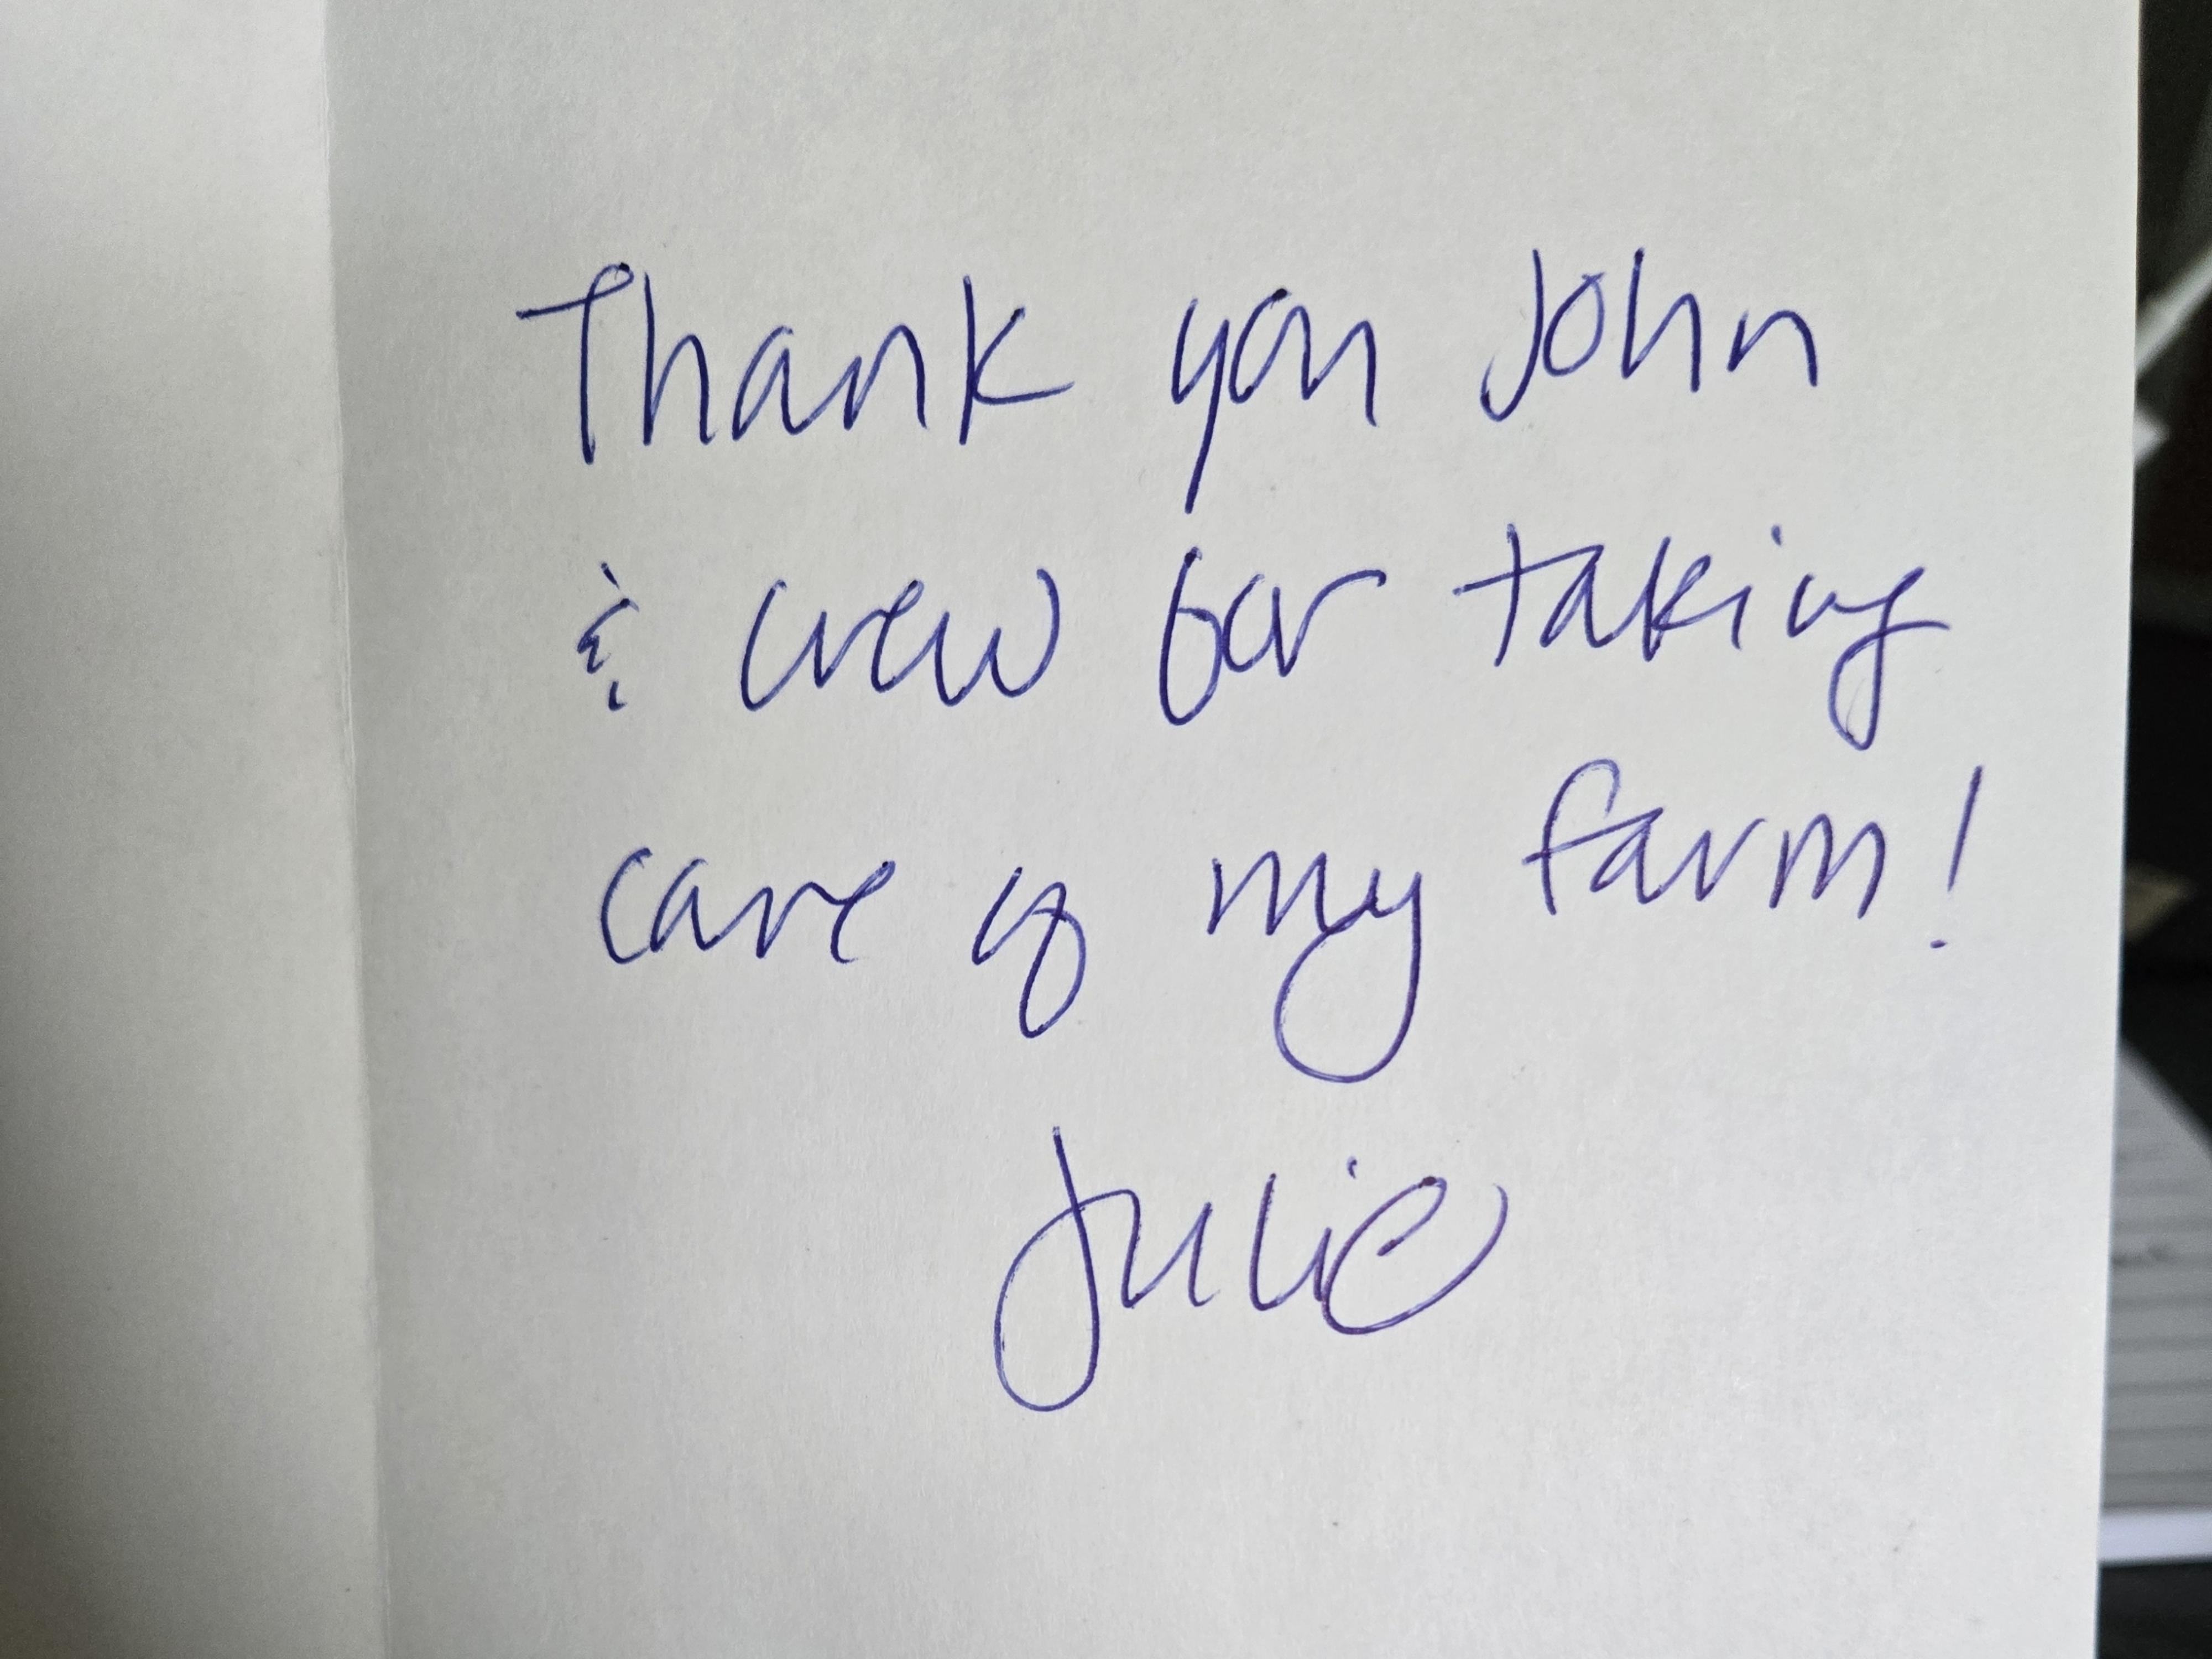 Thank you John
& crew for taking
care of my farm!
Julie